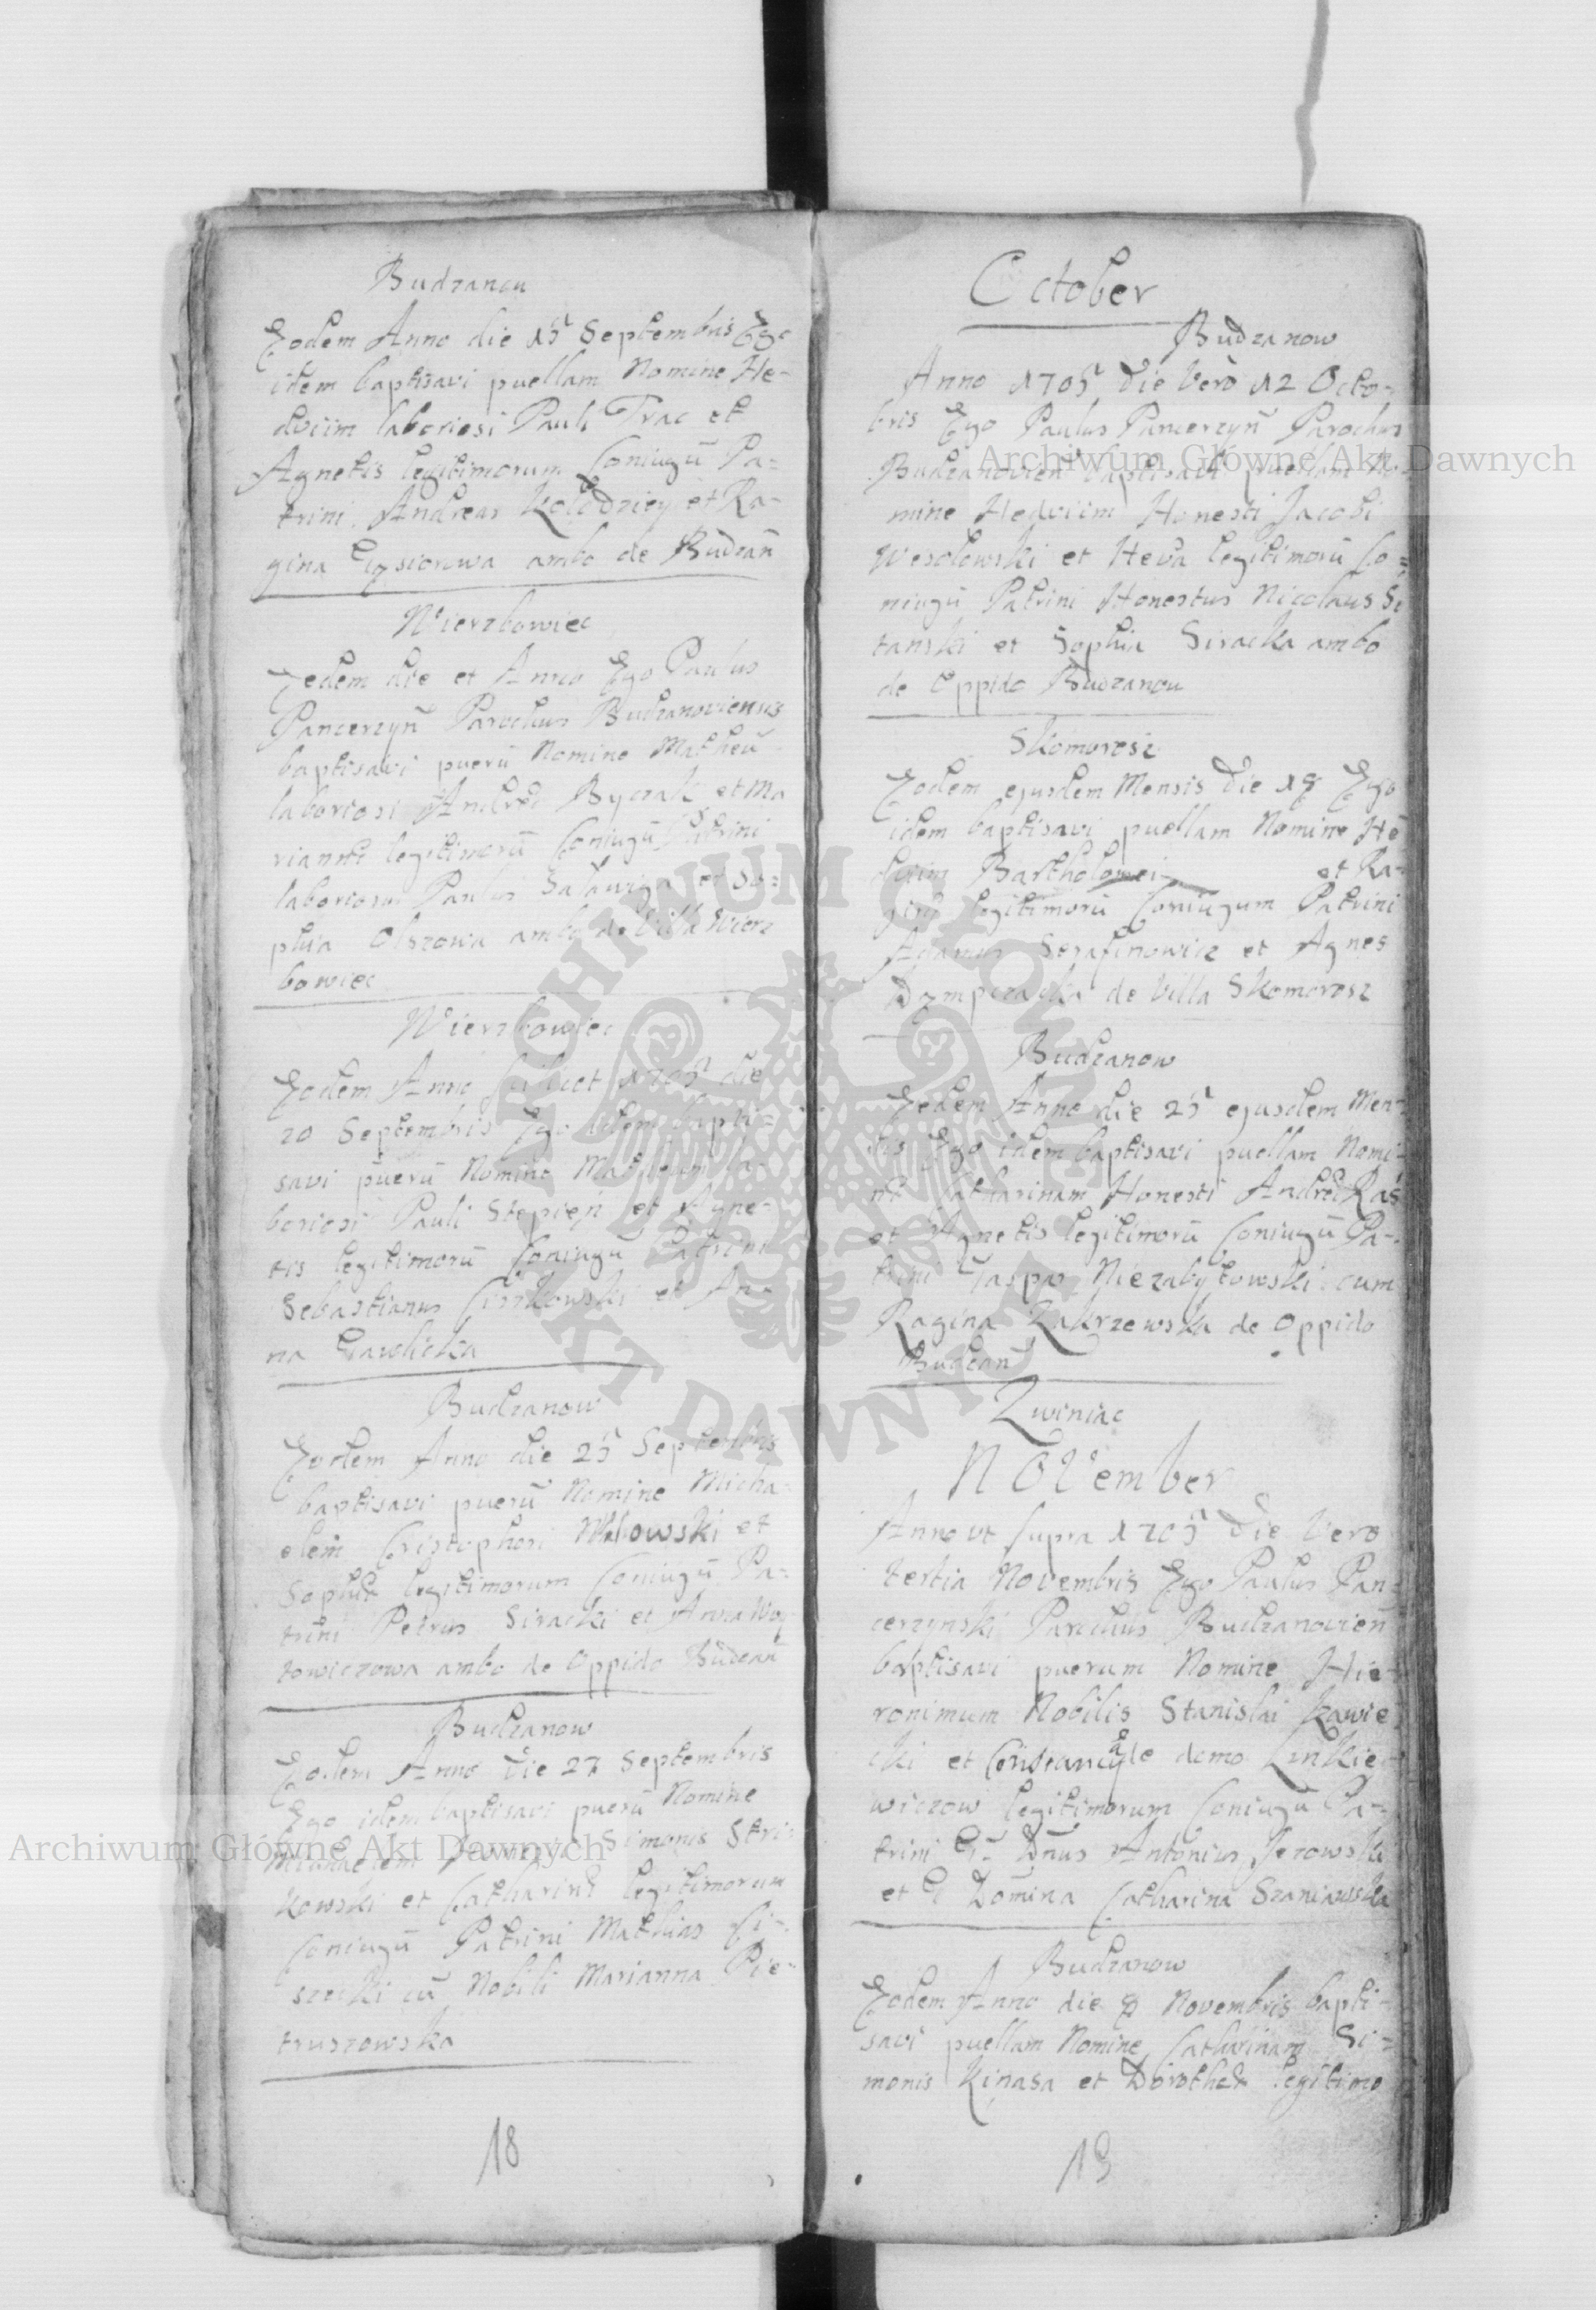 Budzanow
Eodem Anno die 15 Septembris Ego
idem baptisavi puellam Nomine He-
dviim laboriosi Pauli Trac et
Agnetis legitimorum Coniugū Pa-
trini Andreas Kołodziey et Ra-
gina ambo de Budzan̄
Wierzbowiec
Eodem die et Anno Ego Paulus
Pancerzyn̄ Parochus Budzanoviensis
baptisavi puerū Nomine Matheū
laboriosi Andreæ Byczak et Ma
riannæ legitimorū Coniugū Patrini
laboriosus Paulus et So-
phia Olszowa ambo de Villa Wierz
bowiec
Wierzbowiec
Eodem Anno scilicet 1705 die
20 Septembris Ego idem bapti=
savi puerū Nomine Matheum la-
boriosi Pauli Stepień et Agne-
tis legitimorū Coniugū Patrini
Sebastianus et An-
na Gawlicka
Budzanow
Eodem Anno die 25 Septembris
baptisavi puerū Nomine Micha-
elem Cristophori et
Sophiæ legitimorum Coniugū Pa-
trini Petrus Siracki et Anna Woy
towiczowa ambo de Oppido Budzan̄
Budzanow
Eodem Anno Die 27 Septembris
Ego idem baptisavi puerū Nomine
Michaelem Simonis Stri-
kowski et Catharinæ legitimorum
Coniugū Patrini Mathias Ci-
szecki cū Nobili Marianna Pie-
truszowska
18
October
Budzanow
Anno 1705 Die Vero 12 Octo-
bris Ego Paulus Pancerzyn̄ Parochus
Budzanovien̄ baptisavi puellam No-
mine Hedviim Honesti Jacobi
Wesołowski et Heva legitimorū Co=
niugū Patrini Honestus Nicolaus Si
tanski et Sophia Siracka ambo
de Oppido Budzanow
Skomorosz
Eodem ejusdem Mensis Die 18 Ego
idem baptisavi puellam Nomine He
dviim Bartholomei et Ra-
ginæ legitimorū Coniugum Patrini
Adamus Serafinowicz et Agnes
de Villa Skomorosz
Budzanow
Eodem Anno die 25 ejusdem Men-
sis Ego idem baptisavi puellam Nomi-
ne Catharinam Honesti Andreæ Ras
et Agnetis legitimorū Coniugū Pa-
trini Gaspar Niezabytowski cum
Ragina Zakrzewska de Oppido
Budzan̄
Zwiniac
November
Anno ut supra 1705 Die Vero
tertia Novembris Ego Paulus Pan-
cerzynski Parochus Budzanovien̄
baptisavi puerum Nomine Hie-
ronimum Nobilis Stanislai Kawie
cki et de domo Linkie-
wiczow legitimorum Coniugū Pa-
trini G: Dn̄us Antonius Jezowski
et G Domina Catharina Szaniawska
Budzanow
Eodem Anno die 8 Novembris bapti-
savi puellam Nomine Catharinam Si=
monis Kinasa et Dorotheæ legitimo
19
Archiwum Główne Akt Dawnych
Archiwum Główne Akt Dawnych
ARCHIWUM GŁÓWNE AKT DAWNYCH